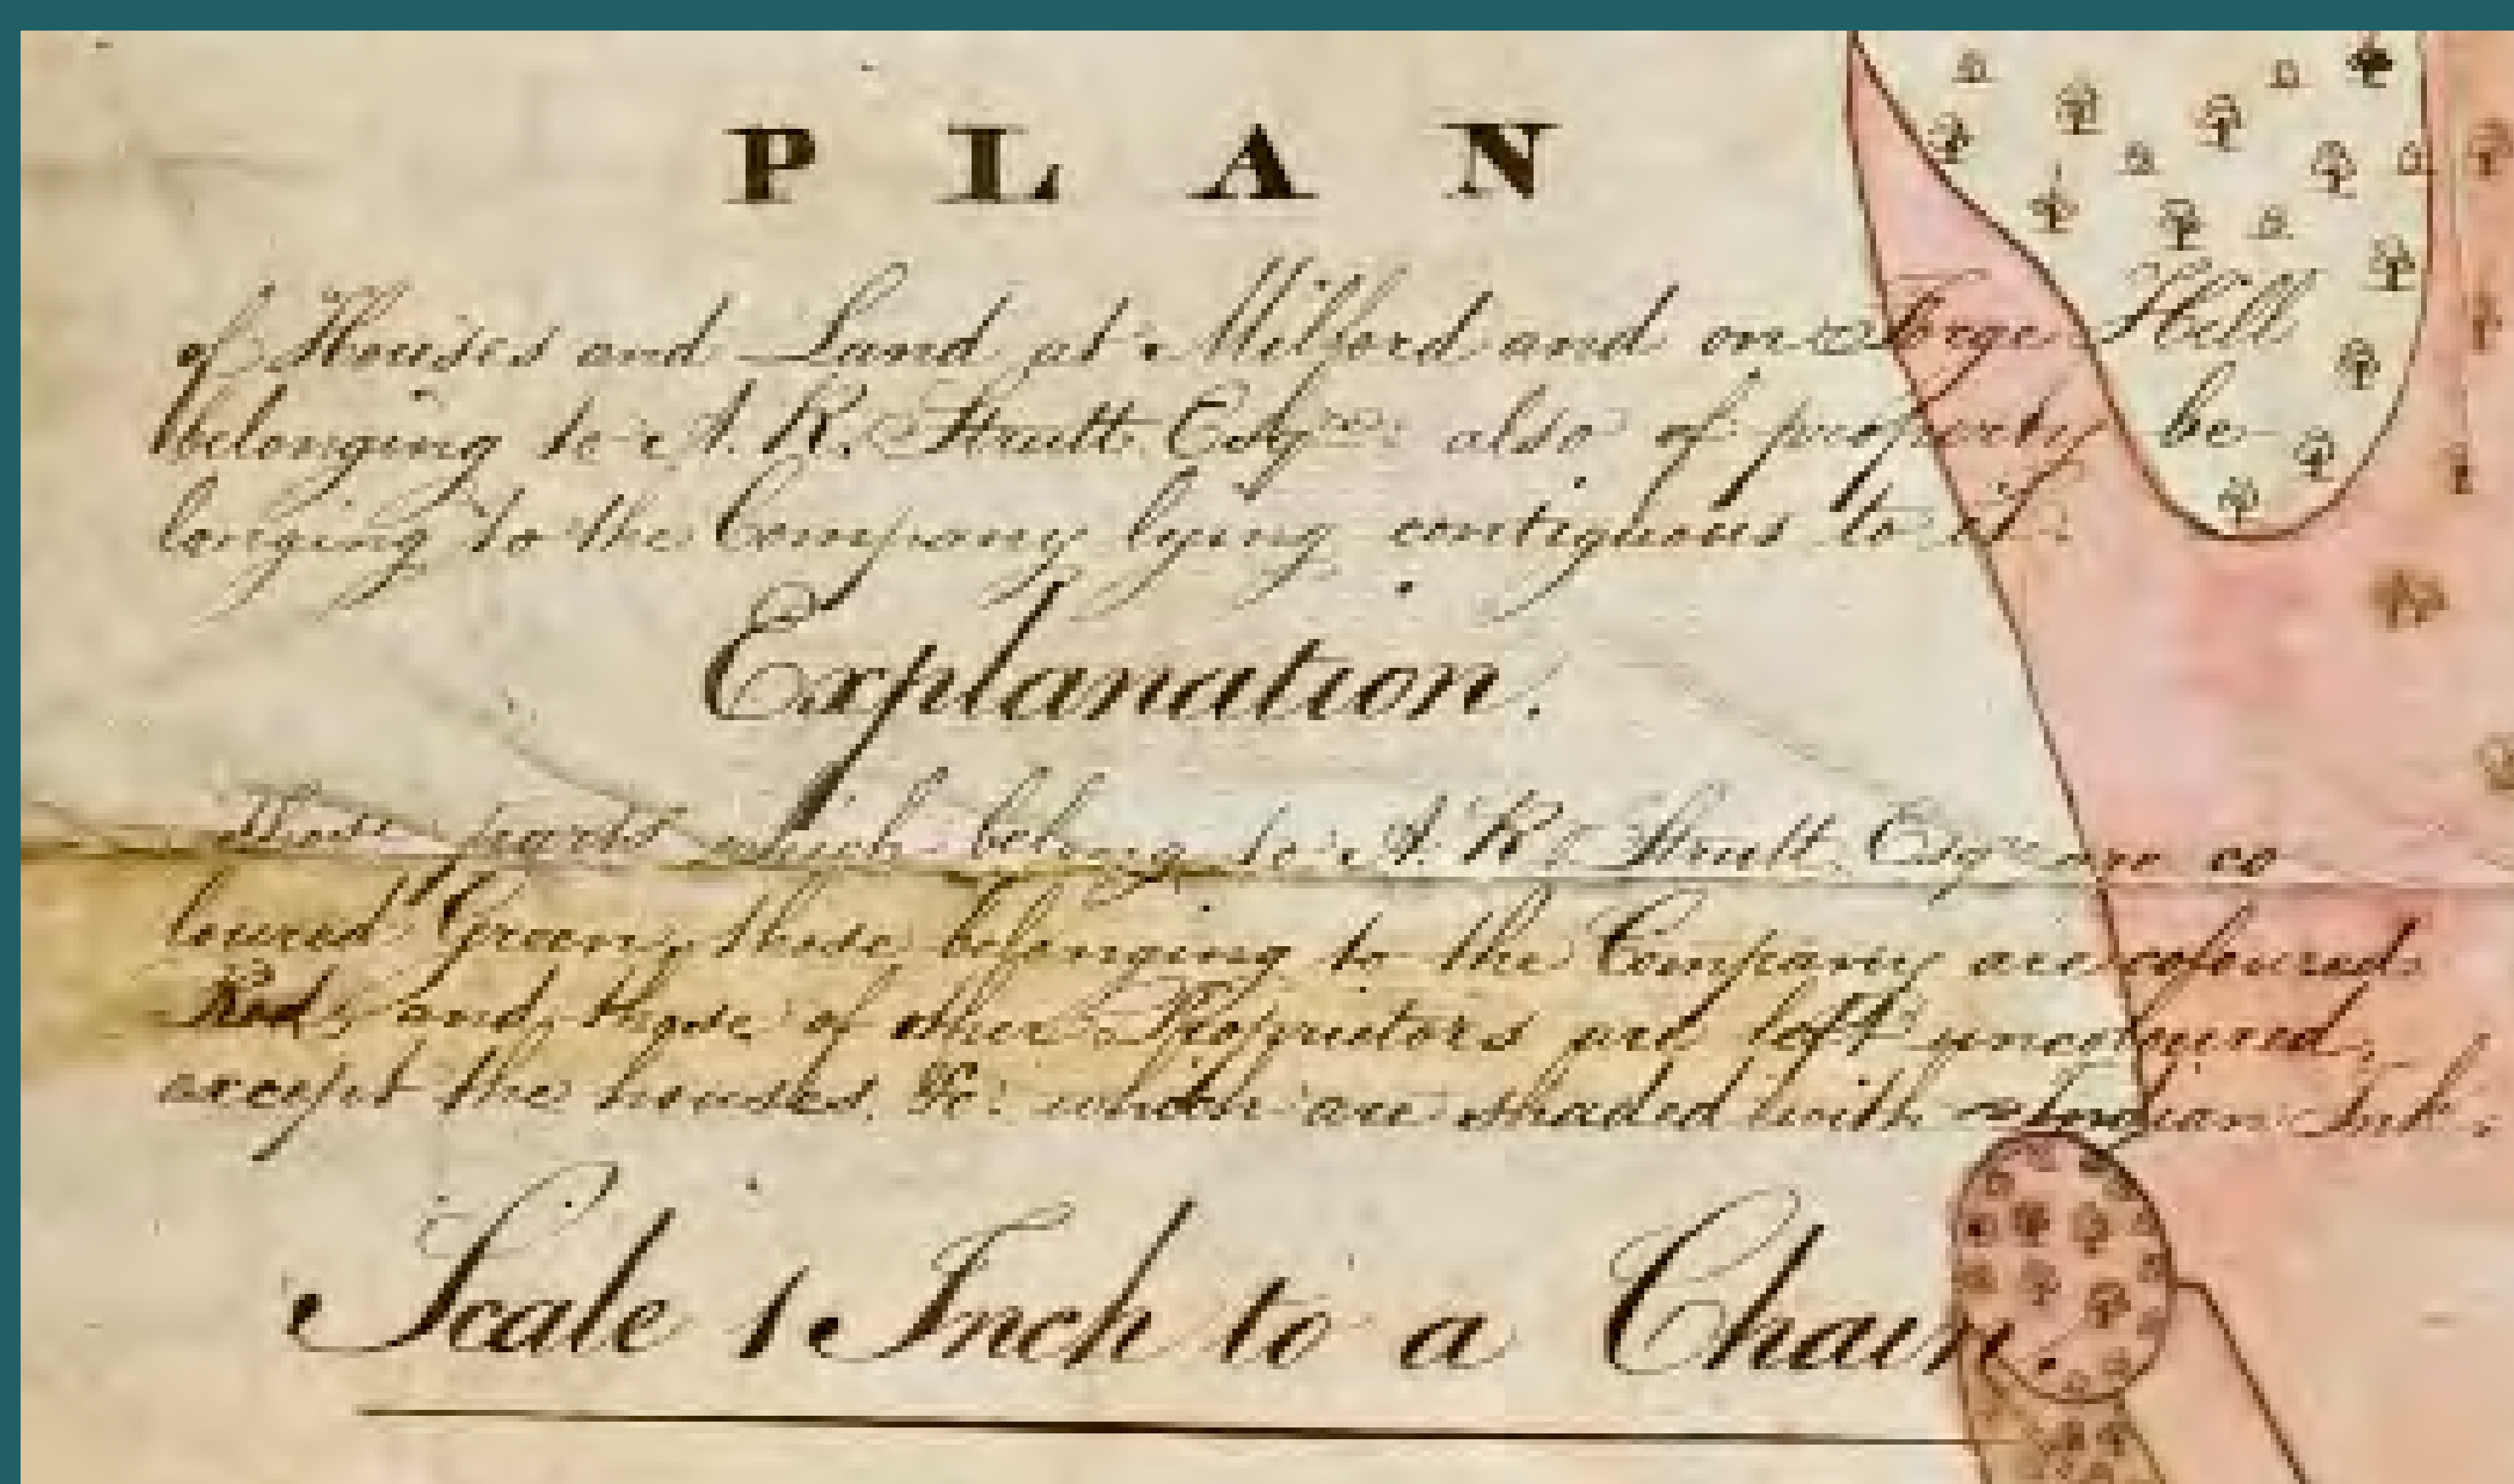 PLAN
of Houses and Land at Milford and on Forge Hill
belonging to A. R. Strutt Esqre: also of property be-
longing to the Company lying contiguous to it.
Explanation.
Those parts which belong to A. R. Strutt Esqre are co
loured Green, those belonging to the Company are coloured
Red, and those of other Proprietors are left uncoloured,
except the houses, &c: which are shaded with Indian Ink.
Scale 1 Inch to a Chain.